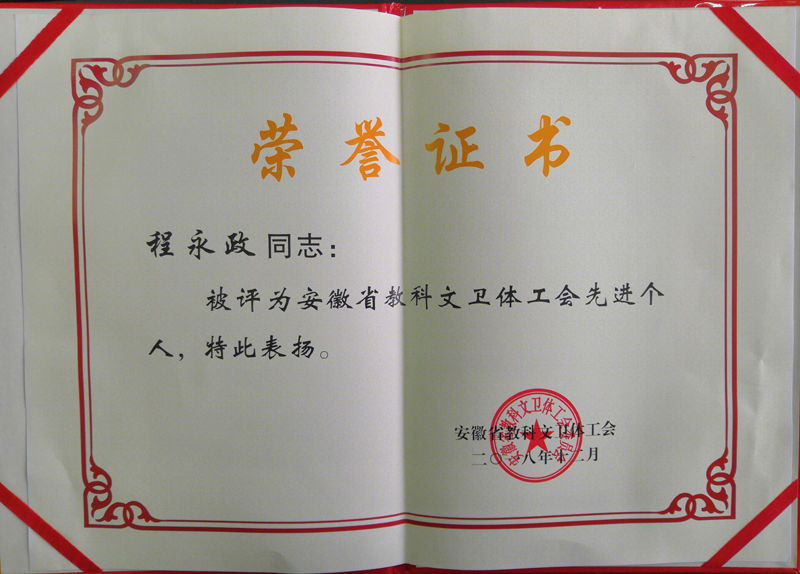 荣誉证书
程永政同志：
被评为安徽省教科文卫体工会先进个
人，特此表扬。
安徽省教科文卫体工会
二〇一八年十二月
安徽省教科文卫体工会委员会